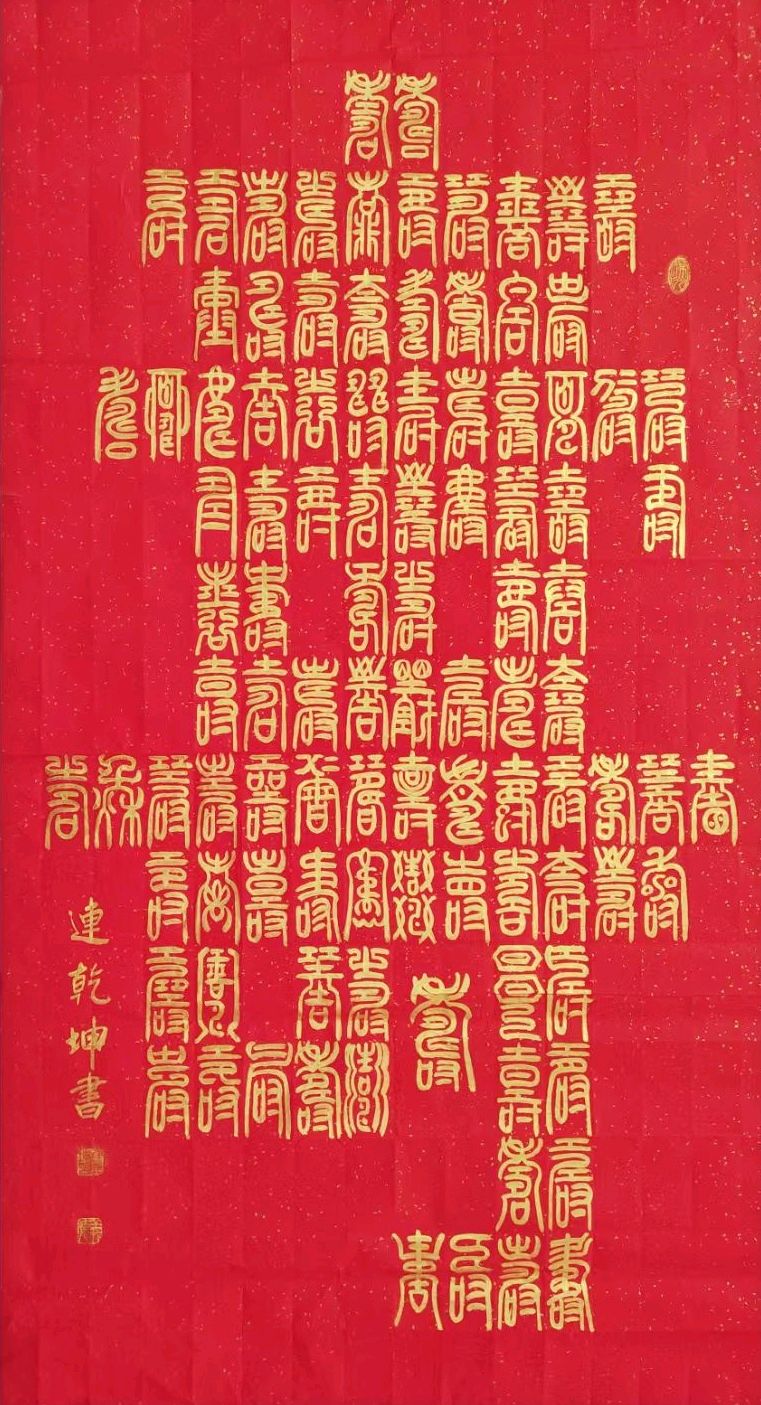 壽壽
壽壽壽壽壽壽壽壽壽壽
壽壽壽壽壽壽壽壽
壽壽壽壽壽壽壽壽壽壽壽壽
壽壽壽壽壽壽壽壽壽
壽壽壽壽壽壽
壽壽壽壽壽壽壽壽
壽壽壽壽壽壽壽壽壽壽壽壽壽壽
壽壽壽壽壽壽壽壽壽壽壽
壽壽壽壽壽壽壽
壽壽壽壽壽壽壽
壽壽
壽壽壽壽
連乾坤書